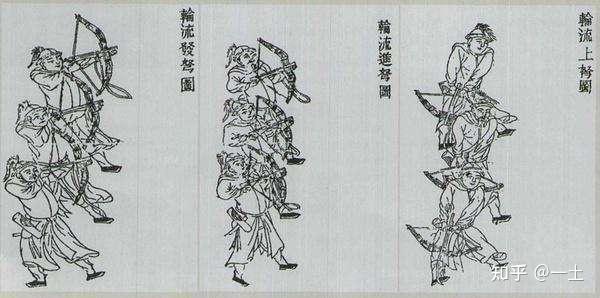 輪流上弩圖
輪流進弩圖
輪流發弩圖
知乎 @一士